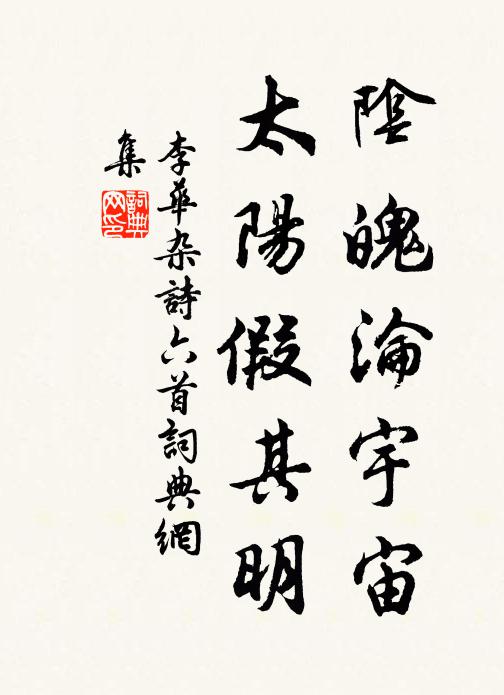 陰魄淪宇宙
太陽假其明
李華杂詩六首詞典網
集
詞典
网印